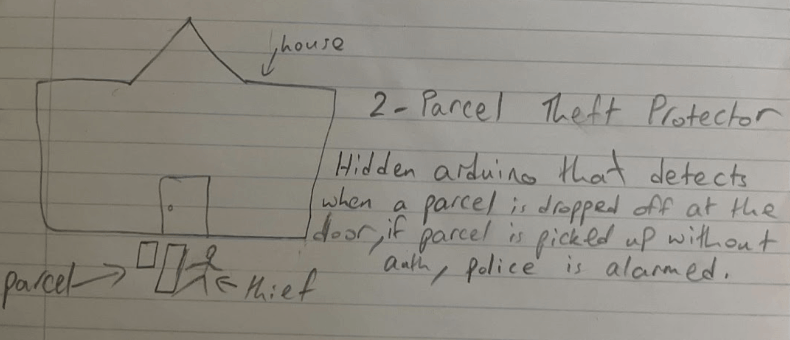 house
2 - Parcel Theft Protector
Hidden arduino that detects
when a parcel is dropped off at the
door, if parcel is picked up without
auth, police is alarmed.
parcel
thief